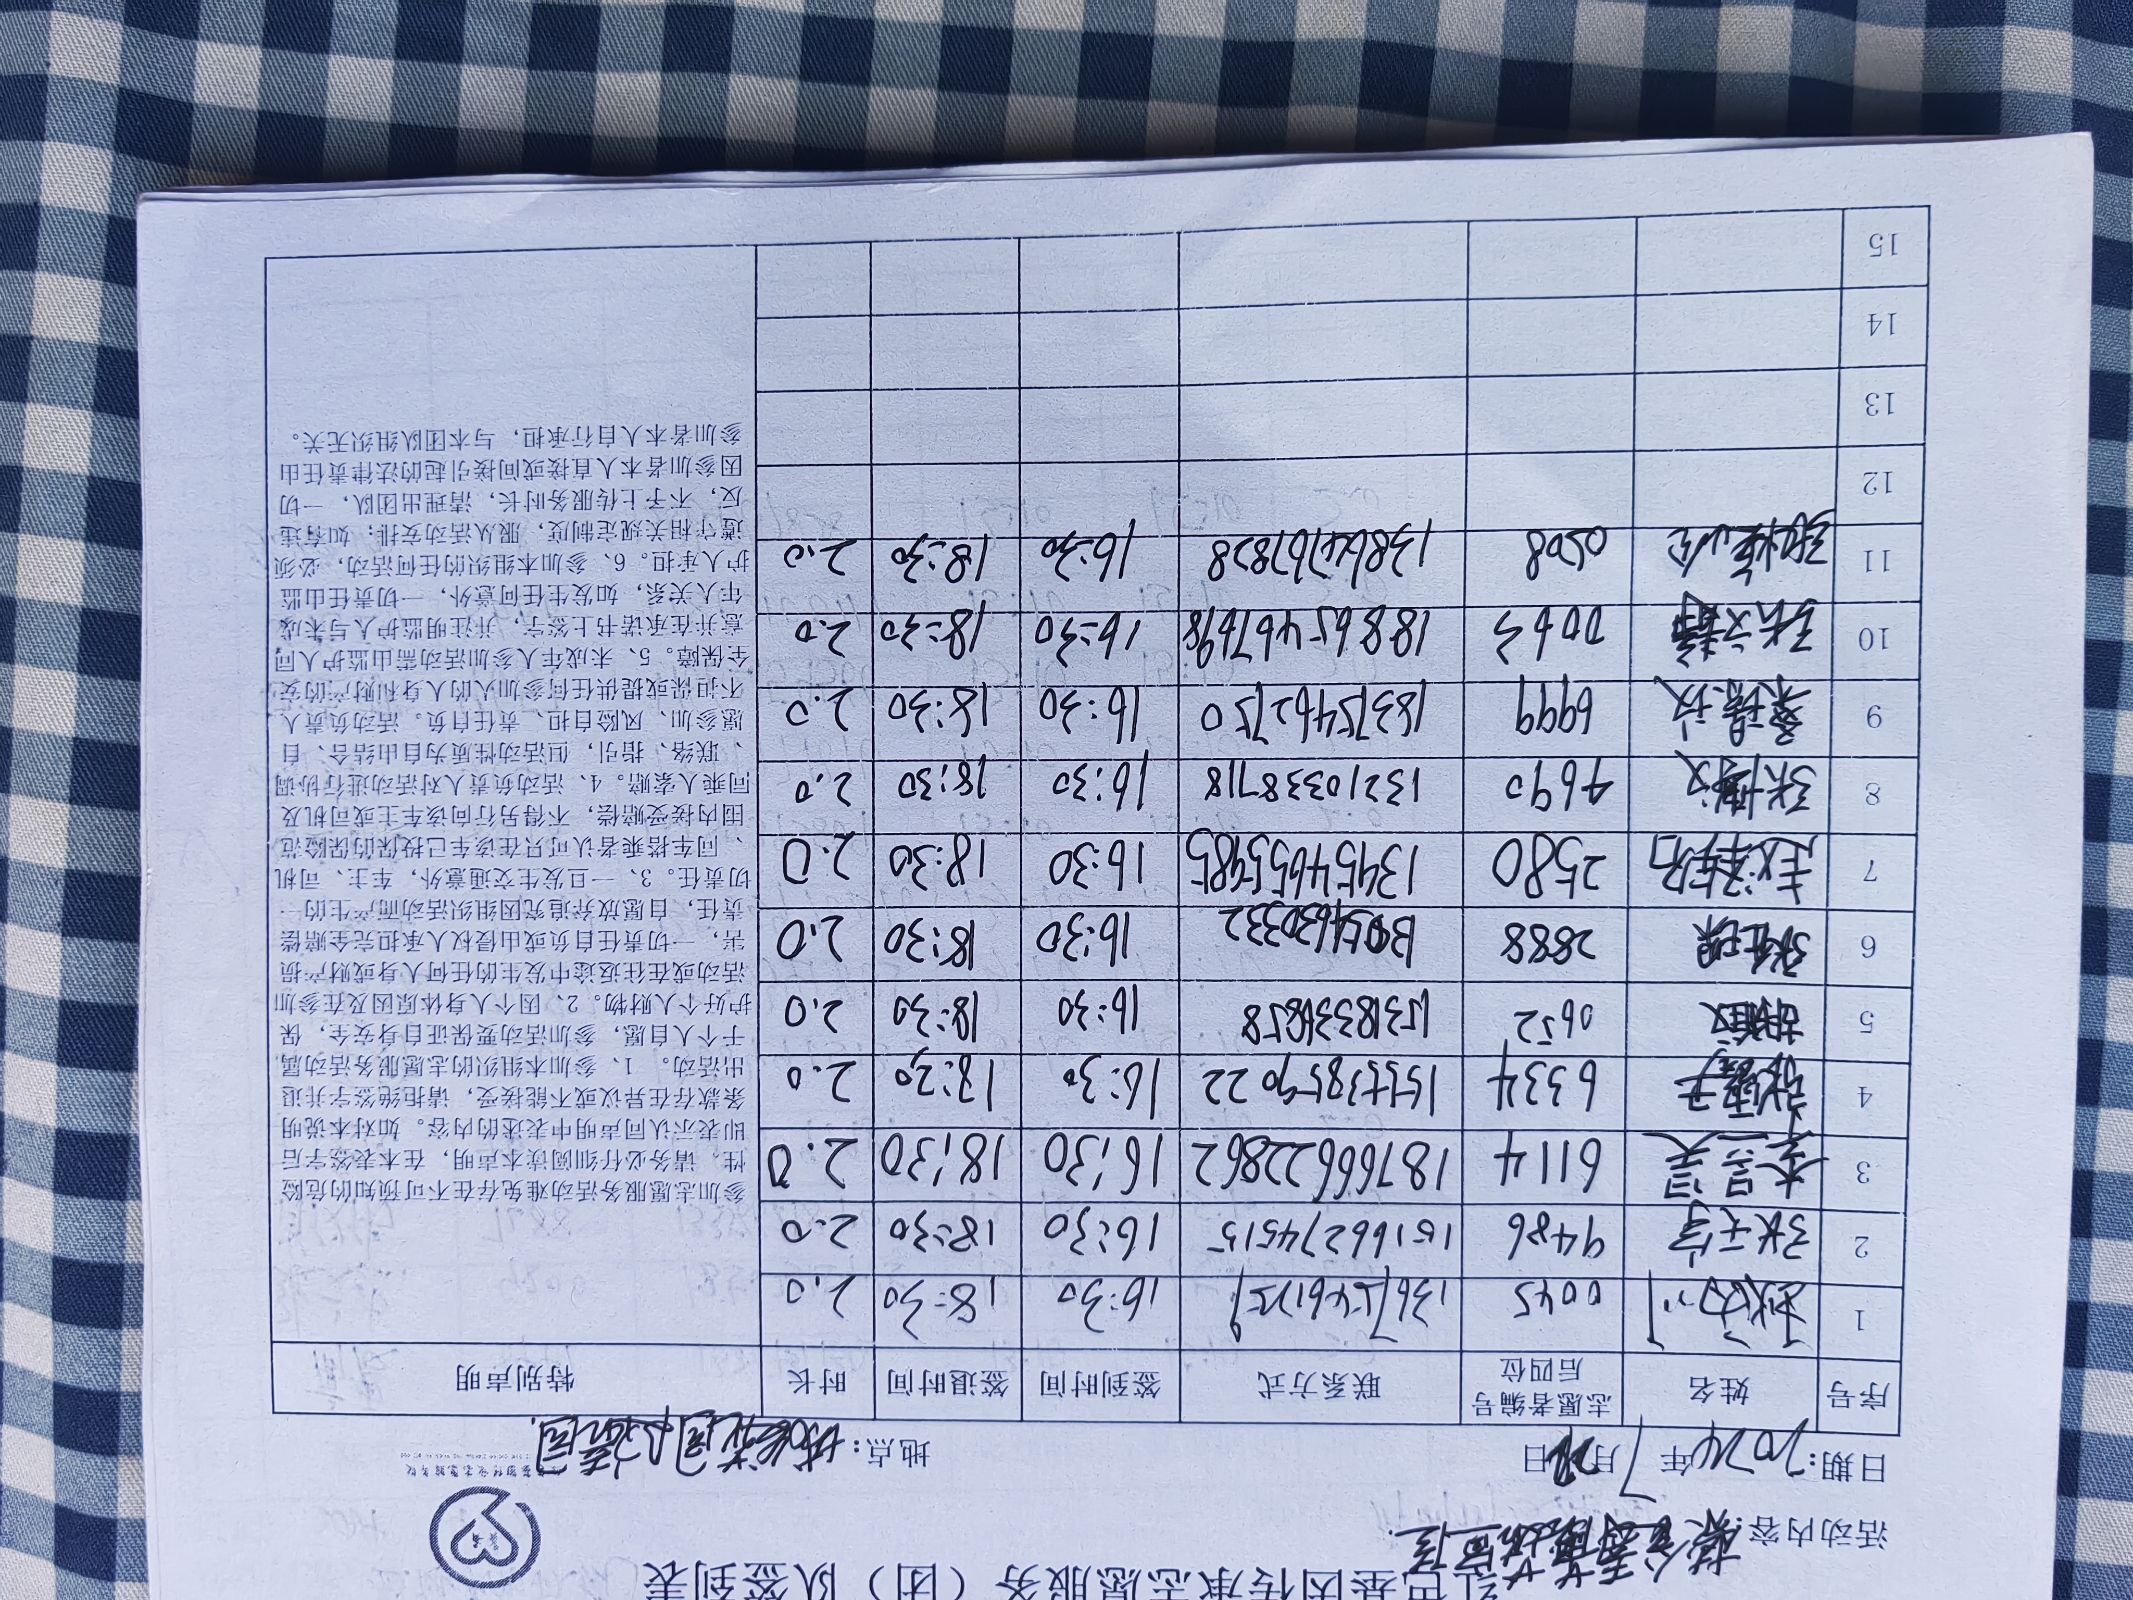 红色基因传承志愿服务（团）队签到表
活动内容：
日期：2024年7月 日 地点：
序号 姓名 志愿者编号后四位 联系方式 签到时间 签退时间 时长 特别声明
1 0045 16:30 18:30 2.0
2 张天宇 9486 15166274515 16:30 18:30 2.0
3 6114 18766622862 16:30 18:30 2.0
4 6334 15573859022 16:30 18:30 2.0
5 0652 16:30 18:30 2.0
6 2888 16:30 18:30 2.0
7 2580 13454655985 16:30 18:30 2.0
8 张博文 4690 13210338718 16:30 18:30 2.0
9 6999 18375462750 16:30 18:30 2.0
10 张文静 0063 18865467698 16:30 18:30 2.0
11 0508 13864767828 16:30 18:30 2.0
12
13
14
15
参加志愿服务活动难免存在不可预知的危险
性，请务必仔细阅读本声明，在本表签字后
即表示认同声明中表达的内容。如对本说明
条款存在异议或不能接受，请拒绝签字并退
出活动。 1、参加本组织的志愿服务活动属
于个人自愿，参加活动要保证自身安全，保
护好个人财物。2、因个人身体原因及在参加
活动或在往返途中发生的任何人身或财产损
害，一切责任自负或由侵权人承担完全赔偿
责任，自愿放弃追究因组织活动而产生的一
切责任。3、一旦发生交通意外，车主、司机
、同车搭乘者认可只在该车已投保的保险范
围内接受赔偿，不得另行向该车主或司机及
同乘人索赔。4、活动负责人对活动进行协调
、联络、指引，但活动性质为自由结合、自
愿参加、风险自担、责任自负。活动负责人
不担保或提供任何参加人的人身和财产的安
全保障。5、未成年人参加活动需由监护人同
意并在承诺书上签字，并注明监护人与未成
年人关系，如发生任何意外，一切责任由监
护人承担。6、参加本组织的任何活动，必须
遵守相关规定制度，服从活动安排；如有违
反，不予上传服务时长，清理出团队，一切
因参加者本人直接或间接引起的法律责任由
参加者本人自行承担，与本团队组织无关。